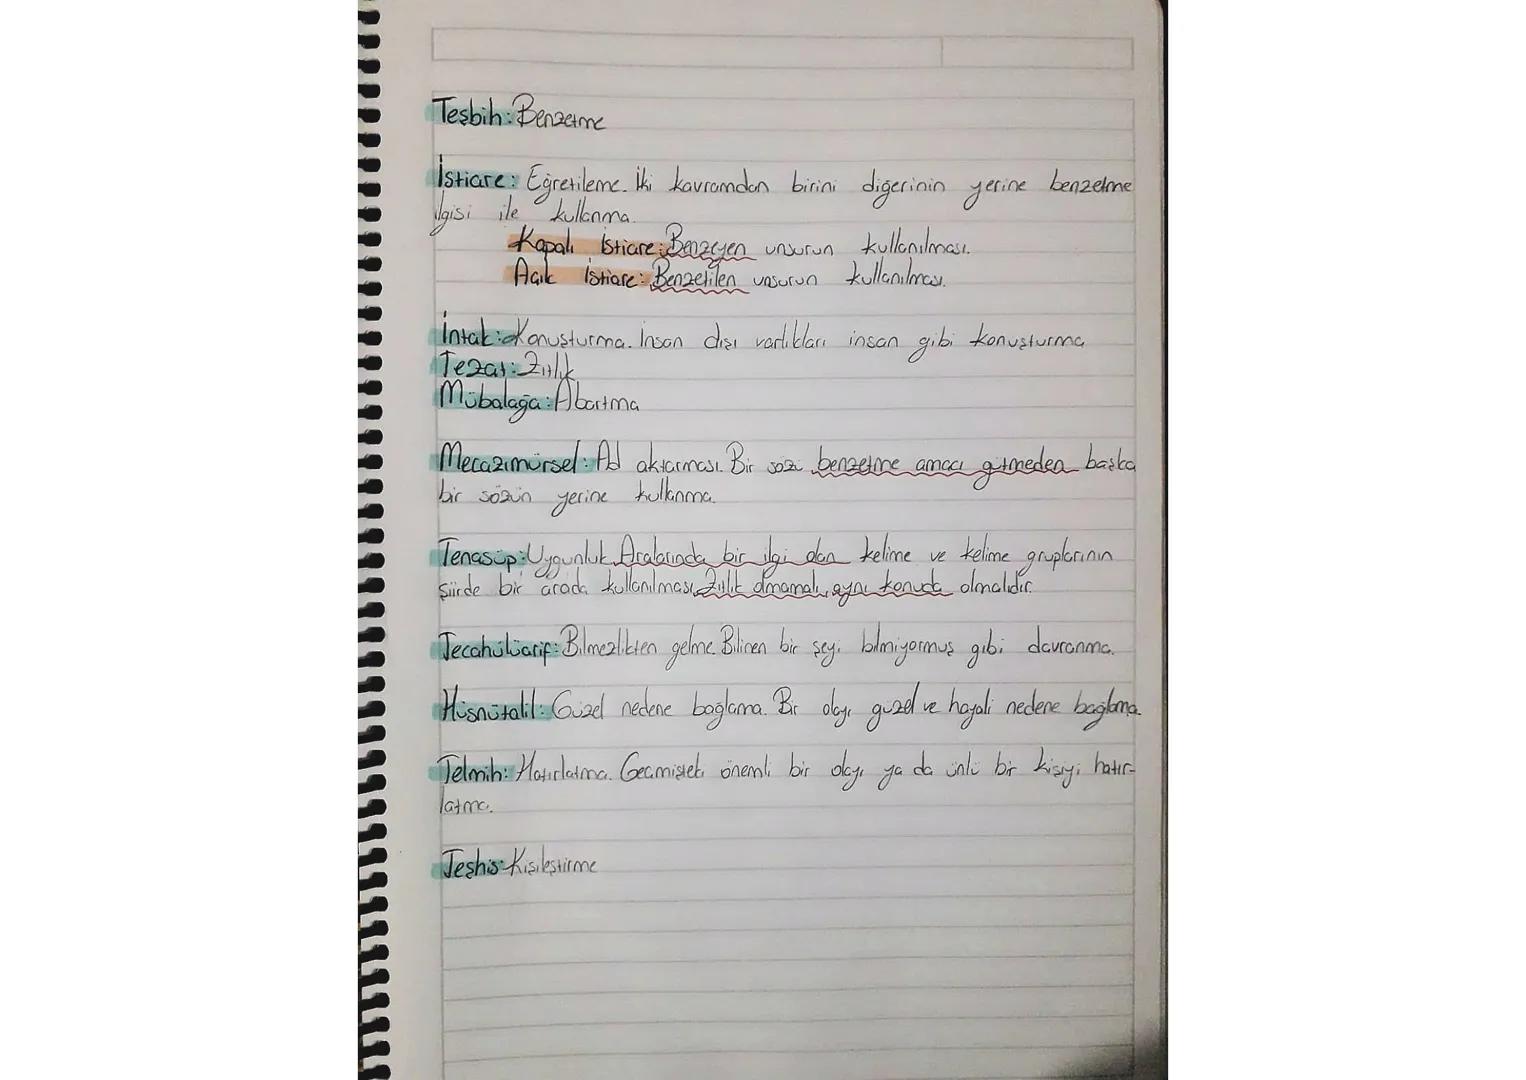 Teşbih: Benzetme
İstiare: Eğretileme. İki kavramdan birini diğerinin yerine benzetme
ilgisi ile kullanma.
Kapalı İstiare: Benzeyen unsurun kullanılması.
Açık İstiare: Benzetilen unsurun kullanılması.
İntak: Konuşturma. İnsan dışı varlıkları insan gibi konuşturma
Tezat: Zıtlık
Mübalağa: Abartma
Mecazımürsel: Ad aktarması. Bir sözü benzetme amacı gütmeden başka
bir sözün yerine kullanma.
Tenasüp: Uygunluk. Aralarında bir ilgi olan kelime ve kelime gruplarının
şiirde bir arada kullanılması. Zıtlık olmamalı, aynı konuda olmalıdır.
Tecahülüarif: Bilmezlikten gelme. Bilinen bir şeyi bilmiyormuş gibi davranma.
Hüsnütalil: Güzel nedene bağlama. Bir olayı güzel ve hayali nedene bağlama.
Telmih: Hatırlatma. Geçmişteki önemli bir olayı ya da ünlü bir kişiyi hatır-
latma.
Teşhis: Kişileştirme